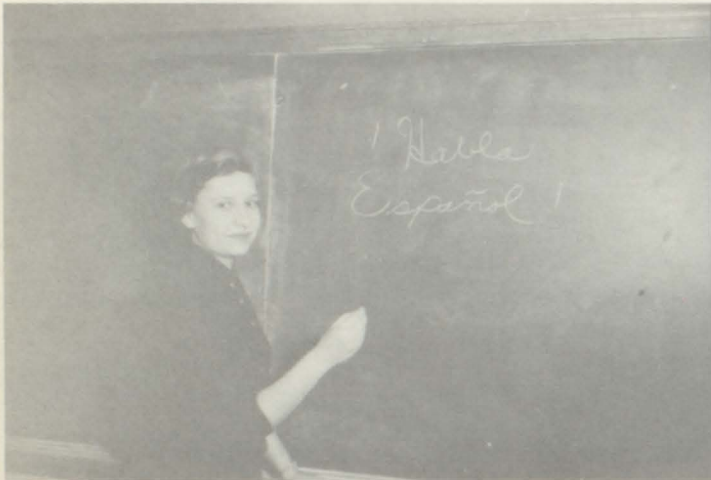 ¡Habla
Español!